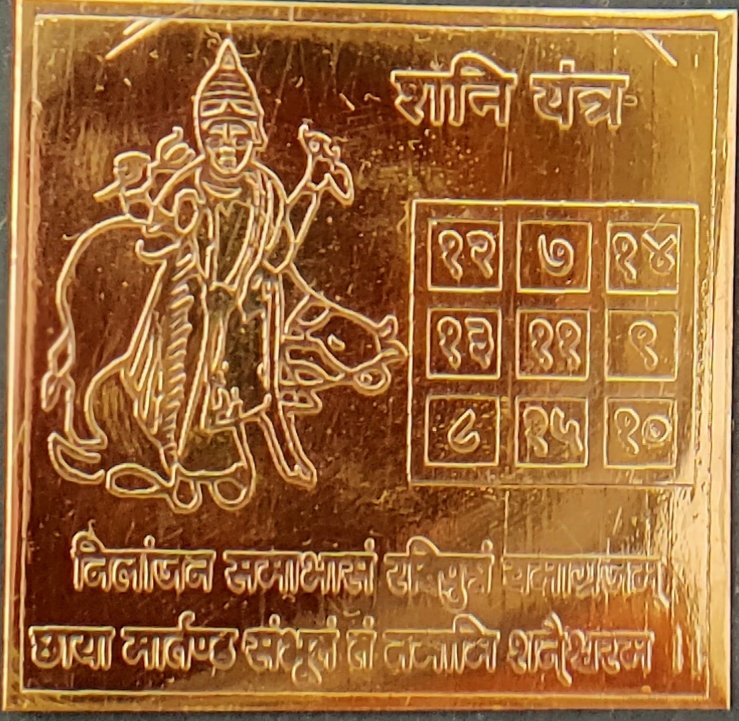 शनि यंत्र
१२ ७ १४
१३ ११ ९
८ १५ १०
निलांजन समाभासं रविपुत्रं यमाग्रजम्
छाया मार्तण्ड संभूतं तं नमामि शनैश्वरम ।।